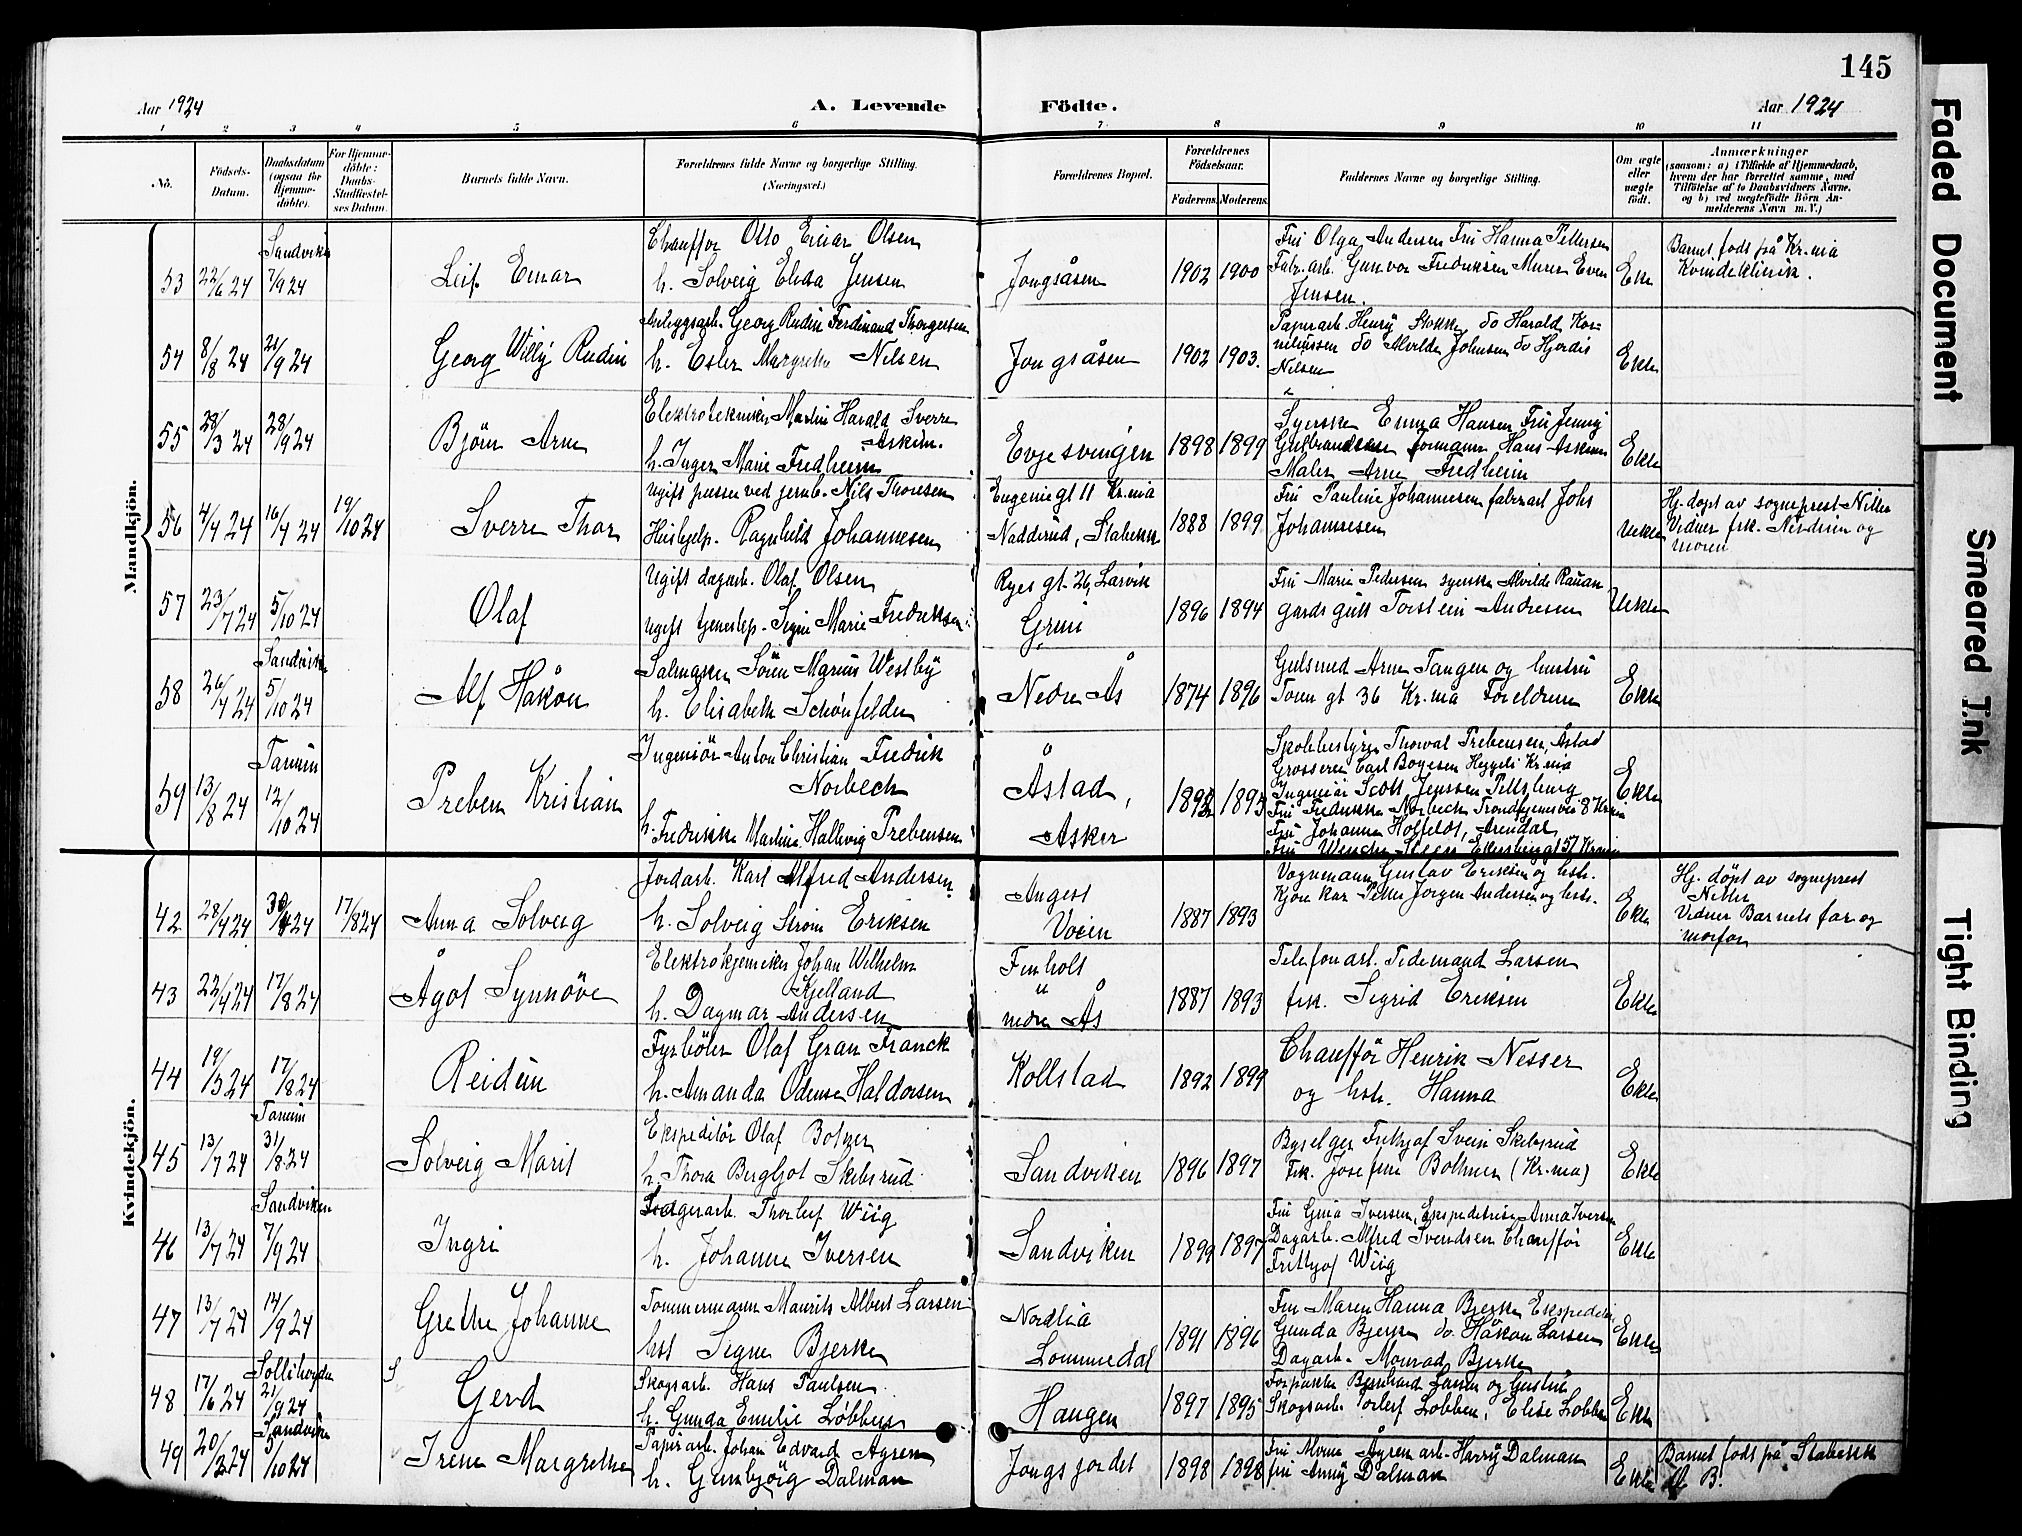 145
Aar 1924
A. Levende
Födte.
Aar 1924
1 2 3 4 5 6 7 8 9 10 11
No.
Födsels-Datum.
Daabsdatum (ogsaa for Hjemmedöbte).
For Hjemmedöbte: Daabs-Stadfæstelses Datum.
Barnets fulde Navn.
Forældrenes fulde Navne og borgerlige Stilling. (Næringsvei.)
Forældrenes Bopæl.
Forældrenes Födselsaar.
Faderens. Moderens.
Faddernes Navne og borgerlige Stilling.
Om ægte eller uægte födt.
Anmærkninger
(saasom: a) i Tilfælde af Hjemmedaab,
hvem der har forrettet samme, med
Tilföielse af to Daabsvidners Navne.
og b) ved uægtefödte Börn An-
melderens Navn m. V.)
Mandkjön.
53 22/6 24 Sandvika 7/9 24 Leif Einar
Chauffør Otto Einar Olsen
h. Solveig Elida Jensen
Jongsåsen 1902 1900
Fru Olga Andersen Fru Hanna Pettersen
Fabr.arb. Gunvor Fredriksen Murer Even
Jensen.
Ekte
Barnet født på Kr.nia
Kvindeklinik.
54 8/8 24 21/9 24 Georg Willy Rudin
Anleggsarb. Georg Rudin Ferdinand Thorgersen
h. Ester Margrethe Nilsen
Jongsåsen 1902 1903.
Papirarb. Henry Stokke, do Harald Kor-
neliussen do Alvilde Johnsen do Hjørdis
Nilsen
Ekte
55 28/3 24 28/9 24 Bjørn Arne
Elektrotekniker Martin Harald Sverre
Askim.
h. Inger Marie Fredheim
Evjesvingen 1898 1899
Syerske Emma Hansen Fru Jenny
Gulbrandsen Formann Hans Askim
Maler Arne Fredheim
Ekte
56 4/4 24 16/4 24 19/10 24 Sverre Thor
Ugift pusser ved jernb. Nils Thoresen
Hushjelp. Ragnhild Johannesen
Eugeniegt 11 Kr.nia
Nadderud, Stabekk 1888 1899
Fru Pauline Johannesen fabr.arb Johs
Johannesen
Uekte
Hj. døpt av sogneprest Nitter
Vidner frk. Nirdrum og
moren
57 23/7 24 5/10 24 Olaf
Ugift dagarb. Olaf Olsen
Ugift tjenestep. Signe Marie Fredriksen
Ryes gt. 26, Larvik
Grini 1896 1894
Fru Marie Pedersen syerske Alvilde Rauan
gårdsgutt Torstein Andresen
Uekte
58 26/4 24 Sandviken 5/10 24 Alf Håkon
Salmaker Søren Marius Westby
h. Elisabeth Schønfelder
Nedre Ås 1874 1896
Gulsmed Arne Tangen og hustru
Toen gt 36 Kr.nia Foreldrene
Ekte
59 13/8 24 Tanum 12/10 24 Preben Kristian
Ingeniør Anton Christian Fredrik
Norbech
h. Fredrikke Martine Hallevig Prebensen
Åstad,
Asker 1892 1895
Skolebestyrer Thorval Prebensen, Åstad
Grosserer Carl Boyesen Heggeli Kr.nia
Ingeniør Scott Jenssen Pittsburg
Fru Fredrikke Norbech Trondhjemsvei 8 Kr.nia
Fru Johanna Holfeldt, Arendal
Fru Wenche Steen Ekersberggt 57 Kr.nia
Ekte
Kvindekjön.
42 28/4 24 30/4 24 17/8 24 Anna Solveig
Jordarb. Karl Alfred Andersen
h. Solveig Strøm Eriksen
Angest
Vøien 1887 1893
Vognmann Gustav Eriksen og hstr.
Kjørekar Petter Jørgen Andersen og hstr.
Ekte
Hj. døpt av sogneprest
Nitter
Vidner Barnets far og
morfar
43 22/4 24 17/8 24 Ågot Synnøve
Elektrokjemiker Johan Wilhelm
Kjelland
h. Dagmar Andersen
Finholt
"
nedre Ås 1887 1893
Telefonarb. Tidemand Larsen
frk. Sigrid Eriksen
Ekte
44 19/3 24 17/8 24 Reidun
Fyrbøter Olaf Gran Franck
h. Amanda Odense Haldorsen
Kollstad 1892 1899
Chauffør Henrik Nesser
og hstr. Hanna
Ekte
45 13/7 24 Tanum 31/8 24 Solveig Marit
Ekspeditør Olaf Bohmer
h. Thora Bergljot Skibsrud
Sandviken 1896 1897
Byselger Frithjof Svein Skibsrud
Frk. Josefine Bohmer (Kr.nia)
Ekte
46 13/7 24 Sandviken 7/9 24 Ingri
Fargerarb. Thorleif Wiig
h. Johanne Iversen
Sandviken 1899 1897
Fru Gina Iversen, Ekspeditrise Anna Iversen
Dagarb. Alfred Svendsen Chauffør
Frithjof Wiig
Ekte
47 13/7 24 14/9 24 Grethe Johanne
Tømmermann Maurits Albert Larsen
hst Signe Bjerke
Nordlia
Lommedal 1891 1896
Fru Maren Hanna Bjerke Ekspeditrise
Gunda Bjerke do. Håkon Larsen
Dagarb. Monrad Bjerke
Ekte
48 17/6 24 Sollihøgda 21/9 24 Gerd
Skogsarb. Hans Paulsen
h. Gunda Emilie Løbben
Haugen 1897 1895
Forpakter Bernhard Larsen og hustru
Skogsarb. Torleif Løbben, Elise Løbben
Ekte
49 20/3 24 Sandvika 5/10 24 Irene Margrethe
Papirarb. Johan Edvard Agren
h. Gunbjørg Dalman
Jongsjordet 1898 1898
Fru Alvine Ågren arb. Harry Dalman
fru Anny Dalman
Ekte
Barnet født på Stabekk
B.
Faded Document
Smeared Ink
Tight Binding